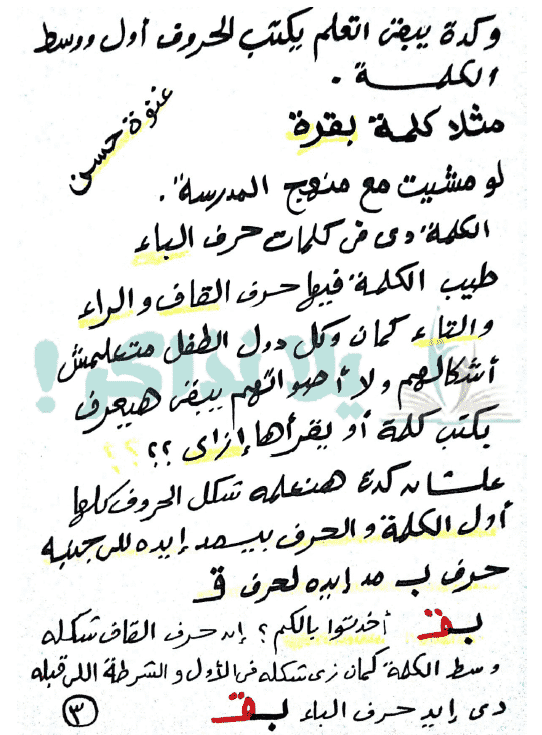 وكدة يبقى اتعلم يكتب الحروف أول ووسط
الكلمــة .
غنوة حسن
مثلا كلمة بقرة
لو مشيت مع منهج المدرسة .
الكلمة دى فى كلمات حرف الباء
طيب الكلمة فيها حرف القاف والراء
والتاء كمان وكل دول الطفل متعلمش
يلا نذاكر!
أشكالهم ولا أصواتهم يبقى هيعرف
يكتب كلمة أو يقرأها إزاى ؟؟
علشان كدة هنعلمه شكل الحروف كلها
أول الكلمة والحرف بيمد إيده للى جنبه
حرف بـ مد إيده لحرف قـ
بـقـ أخدتوا بالكم ؟ إن حرف القاف شكله
وسط الكلمة كمان زى شكله فى الأول والشرطة اللى قبله
دى إيد حرف الباء بـقـ
٣